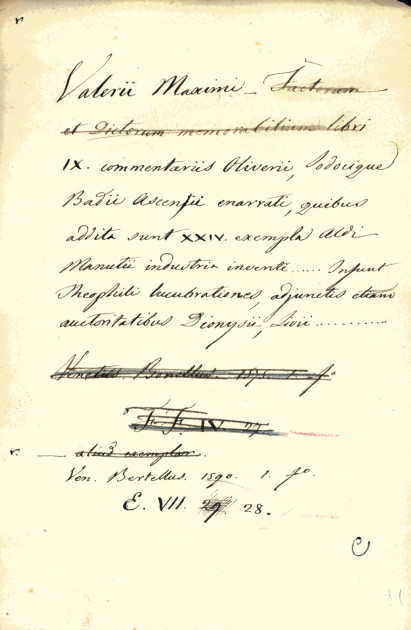 r
Valerii Maximi - Factorum
et Dictorum memorabilium libri
IX. commentariis Oliverii, Jodocique
Badii Ascensii enarrati, quibus
addita sunt XXIV. exempla Aldi
Manutii industria inventa ...... Insunt
Theophili lucubrationes, adjunctis etiam
auctoritatibus Dionysii, Livii ...........
Venetiis. Bonellus. 1575. 1. fo.
F. F. IV 27.
r. — aliud exemplar.
Ven. Bertellus. 1590. 1. fo.
E. VII. 29 28.
C